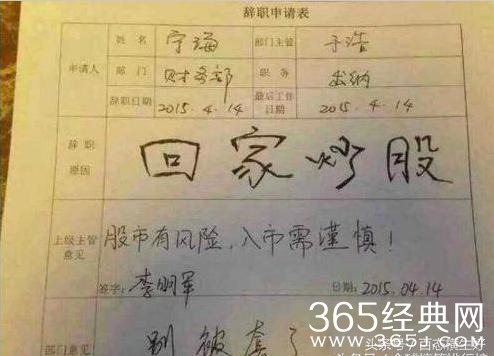 辞职申请表
申请人 姓名 宁海 部门主管 于浩
部门 财务部 职务 出纳
辞职日期 2015.4.14 最后工作日期 2015.4.14
辞职原因 回家炒股
上级主管意见 股市有风险,入市需谨慎!
签字: 李明军 日期: 2015.04.14
部门意见 别被套了
365经典网
www.365jt.com